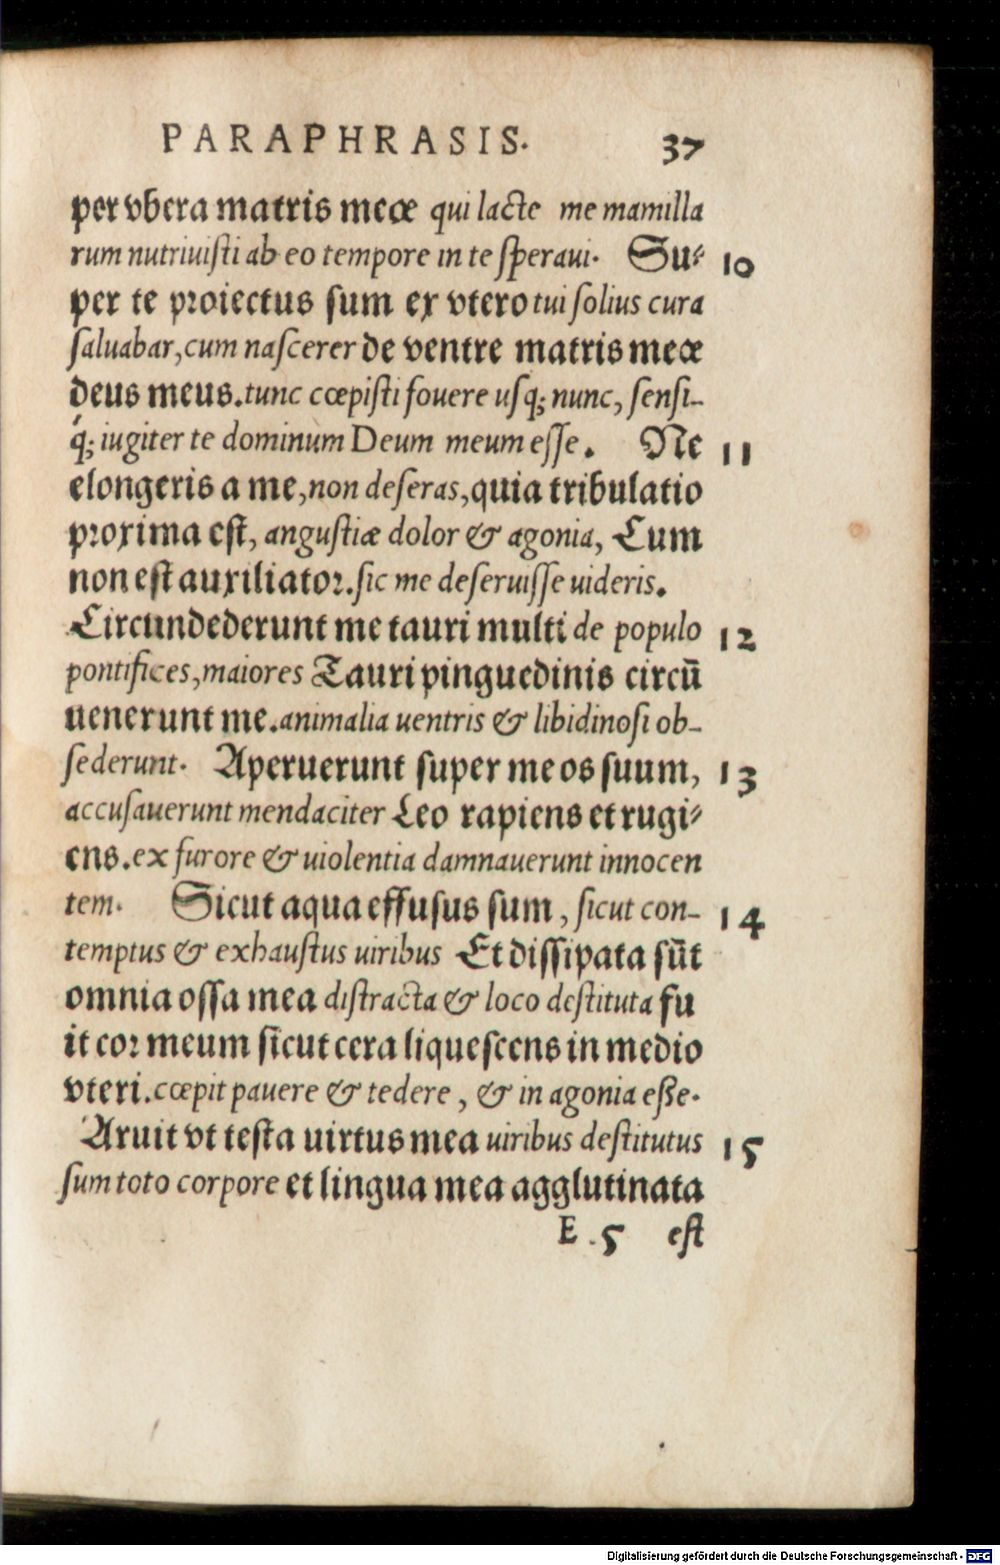 PARAPHRASIS. 37
per vbera matris meæ qui lacte me mamilla
rum nutriuisti ab eo tempore in te speraui. Su⸗ 10
per te proiectus sum ex vtero tui solius cura
saluabar, cum nascerer de ventre matris meæ
deus meus. tunc cœpisti fouere usq; nunc, sensi-
q́; iugiter te dominum Deum meum esse. Ne 11
elongeris a me, non deseras, quia tribulatio
proxima est, angustiæ dolor & agonia, Cum
non est auxiliator. sic me deseruisse uideris.
Circundederunt me tauri multi de populo 12
pontifices, maiores Tauri pinguedinis circū
uenerunt me. animalia uentris & libidinosi ob-
sederunt. Aperuerunt super me os suum, 13
accusauerunt mendaciter Leo rapiens et rugi⸗
ens. ex furore & uiolentia damnauerunt innocen
tem. Sicut aqua effusus sum, sicut con- 14
temptus & exhaustus uiribus Et dissipata sūt
omnia ossa mea distracta & loco destituta fu
it cor meum sicut cera liquescens in medio
vteri. cœpit pauere & tedere, & in agonia esse.
Aruit vt testa uirtus mea uiribus destitutus 15
sum toto corpore et lingua mea agglutinata
E. 5 est
Digitalisierung gefördert durch die Deutsche Forschungsgemeinschaft - DFG